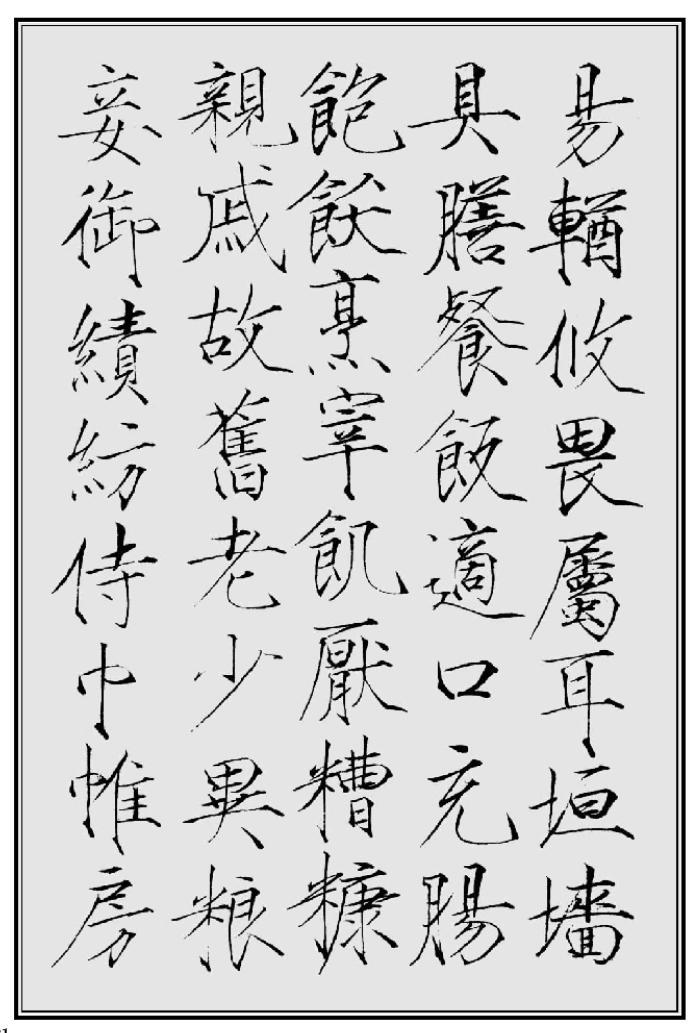 易輶攸畏屬耳垣墻
具膳餐飯適口充腸
飽飫烹宰飢厭糟糠
親戚故舊老少異粮
妾御績紡侍巾帷房